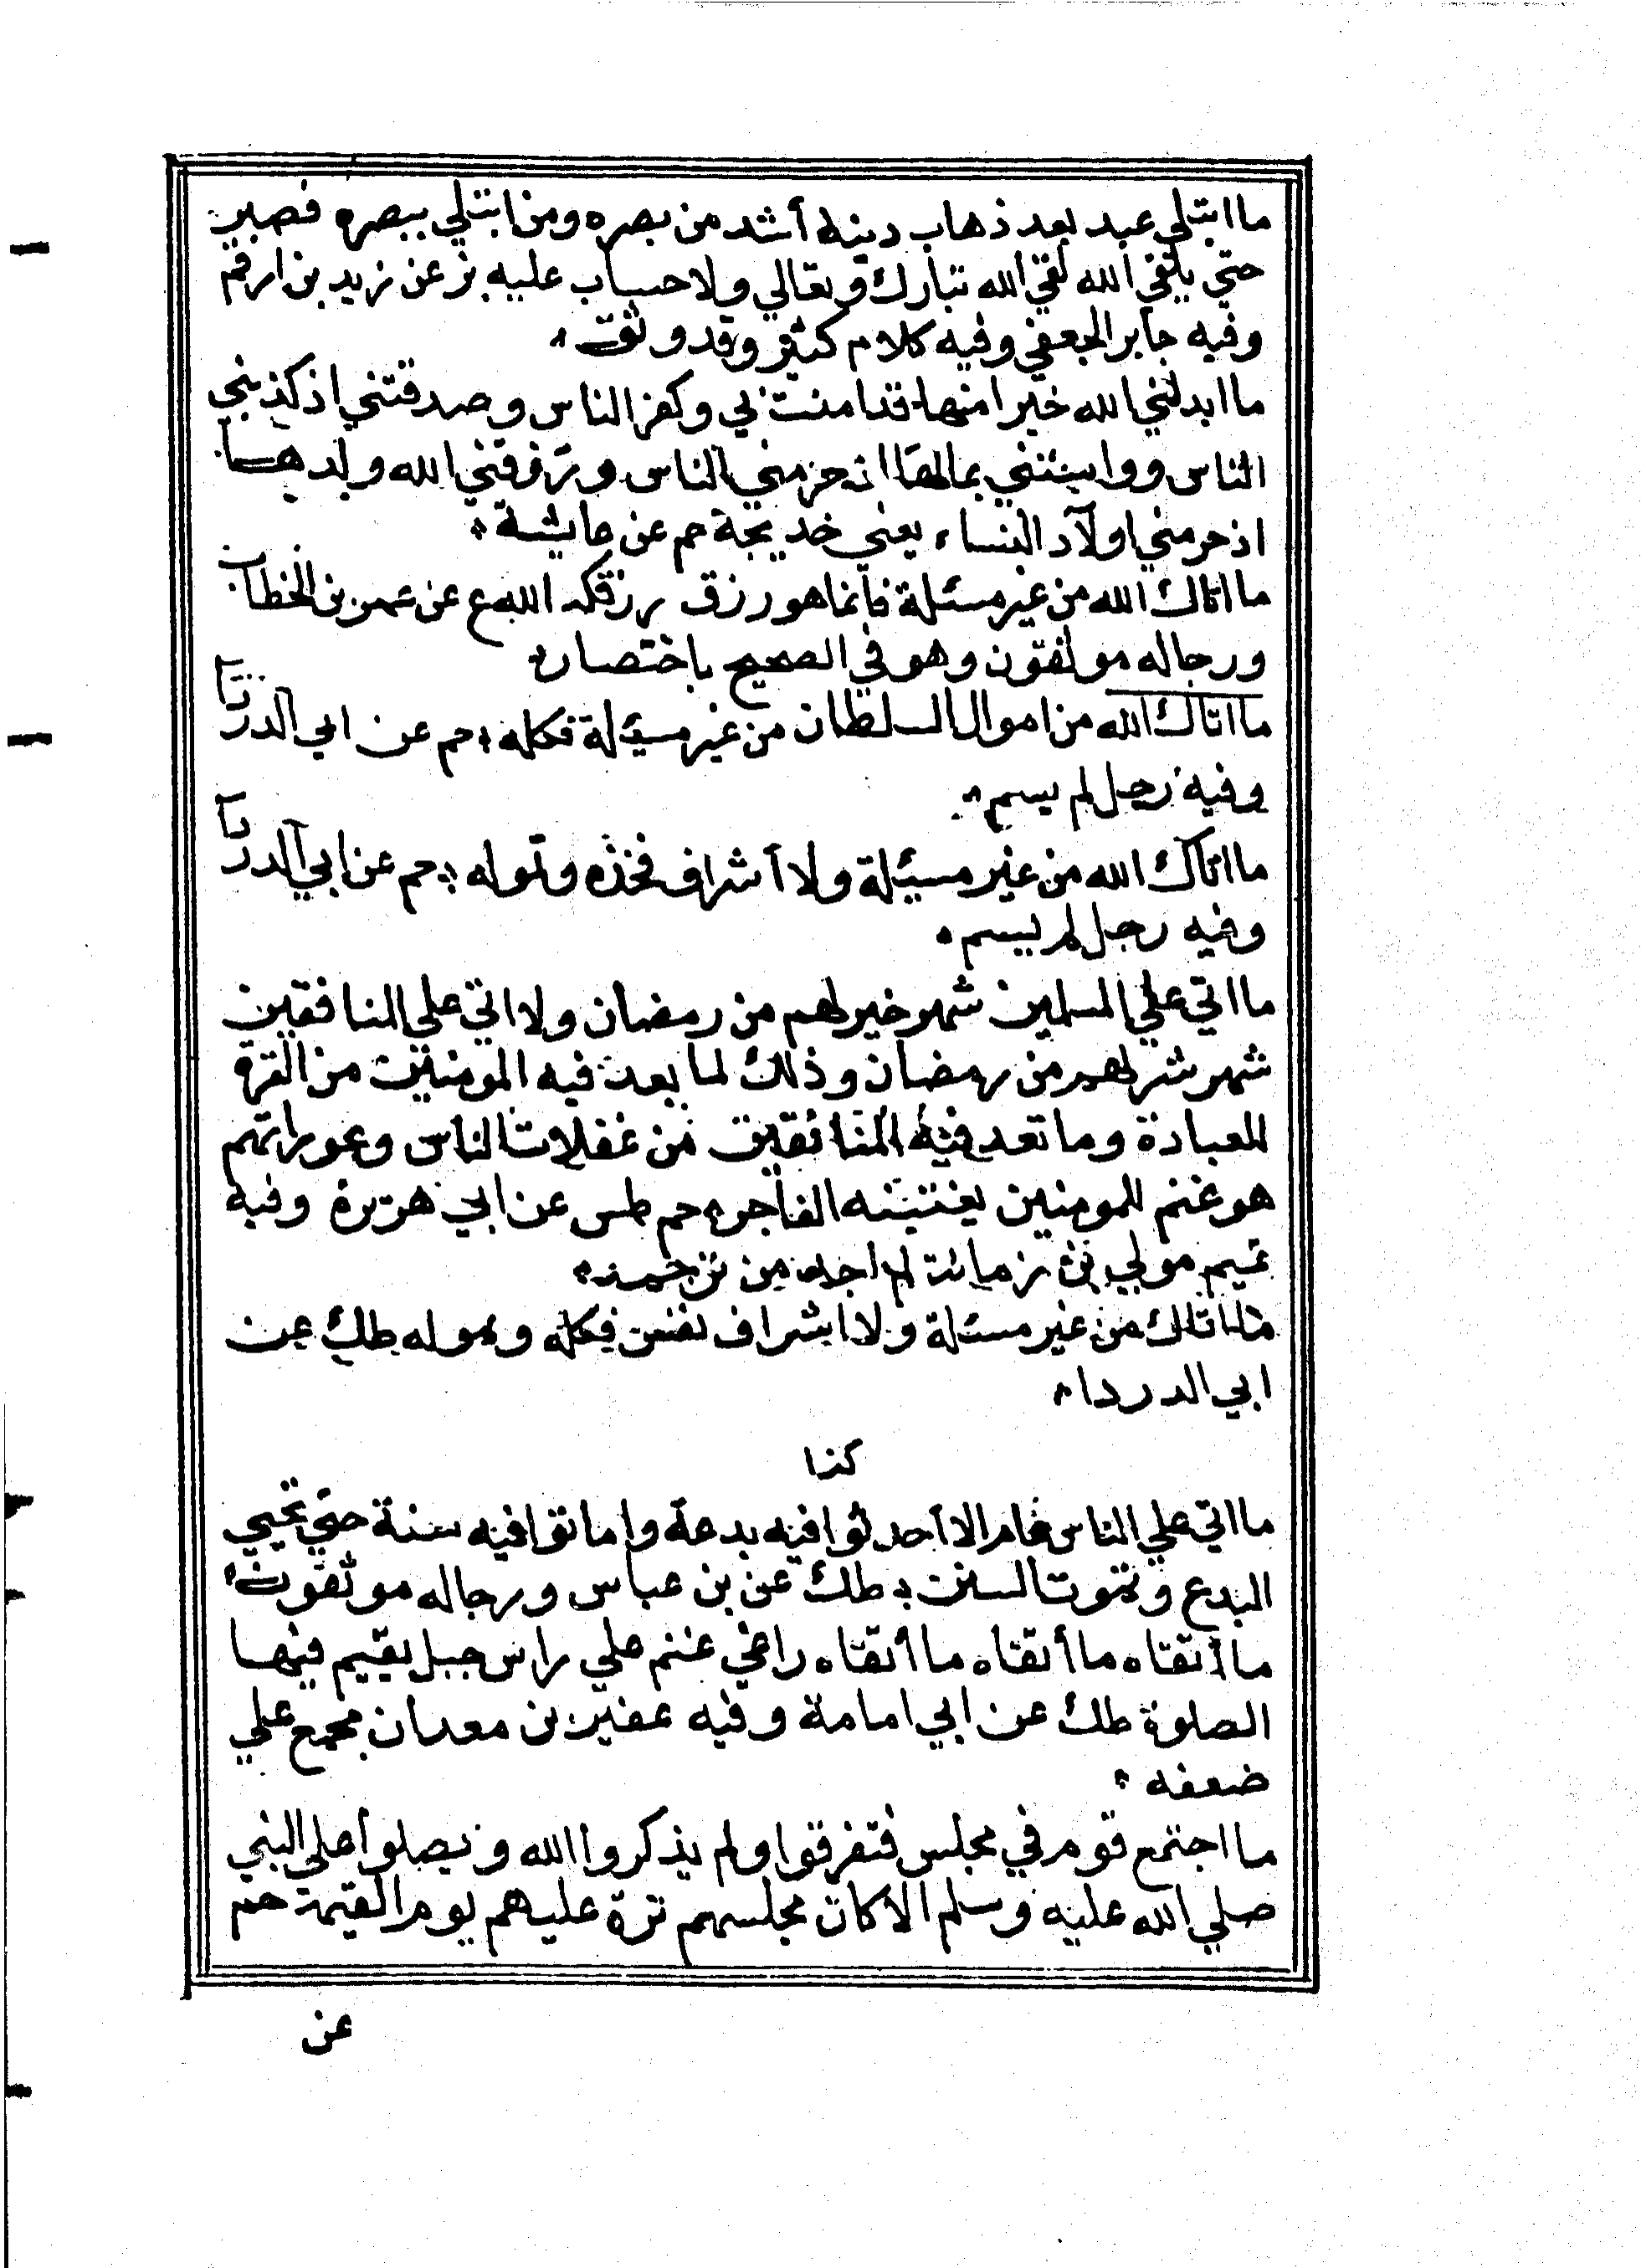 ما ابتلي عبد بعد ذهاب دينه أشد من بصره ومن ابتلي ببصره فصبر
حتي يلقي الله لقي الله تبارك وتعالي ولا حساب عليه بز عن زيد بن ارقم
وفيه جابر الجعفي وفيه كلام كثير وقد وثق
ما ابدلني الله خيرا منها قد امنت بي وكفر الناس وصدقتني اذ كذبني
الناس وواسيتني بمالها اذ حرمني الناس ورزقني الله ولدها
اذ حرمني اولاد النساء يعني خديجة حم عن عايشة
ما اتاك الله من غير مسئلة فانما هو رزق رزقكه الله ع عن عمر بن الخطاب
ورجاله موثقون وهو في الصحيح باختصار
ما اتاك الله من اموال السلطان من غير مسيئلة فكله حم عن ابي الدردا
وفيه رجل لم يسم
ما اتاك الله من غير مسيئلة ولا أشراف فخذه وتموله حم عن ابي الدردا
وفيه رجل لم يسم
ما اتي علي المسلمين شهر خير لهم من رمضان ولا اتي علي المنافقين
شهر شر لهم من رمضان وذلك لما يعد فيه المومنين من القوة
للعبادة وما تعد فيه المنافقين من غفلات الناس وعوراتهم
هو غنم للمومنين يغتنبه الفاجر حم طس عن ابي هريرة وفيه
تميم مولي بن زمانة لم اجد من ترجمه
ما اتاك من غير مسئلة ولا اشراف نفس فكله وتموله طك عن
ابي الدرداء
كذا
ما اتي علي الناس عام الا أحدثوا فيه بدعة واماتوا فيه سنة حتي تحيي
البدع وتموت السنن طك عن بن عباس ورجاله موثقون
ما أتقاه ما أتقاه ما أتقاه راعي غنم علي راس جبل يقيم فيها
الصلوة طك عن ابي امامة وفيه عفير بن معدان مجمع علي
ضعفه
ما اجتمع قوم في مجلس فتفرقوا ولم يذكروا الله ويصلوا علي النبي
صلي الله عليه وسلم الا كان مجلسهم ترة عليهم يوم القيمة حم
عن